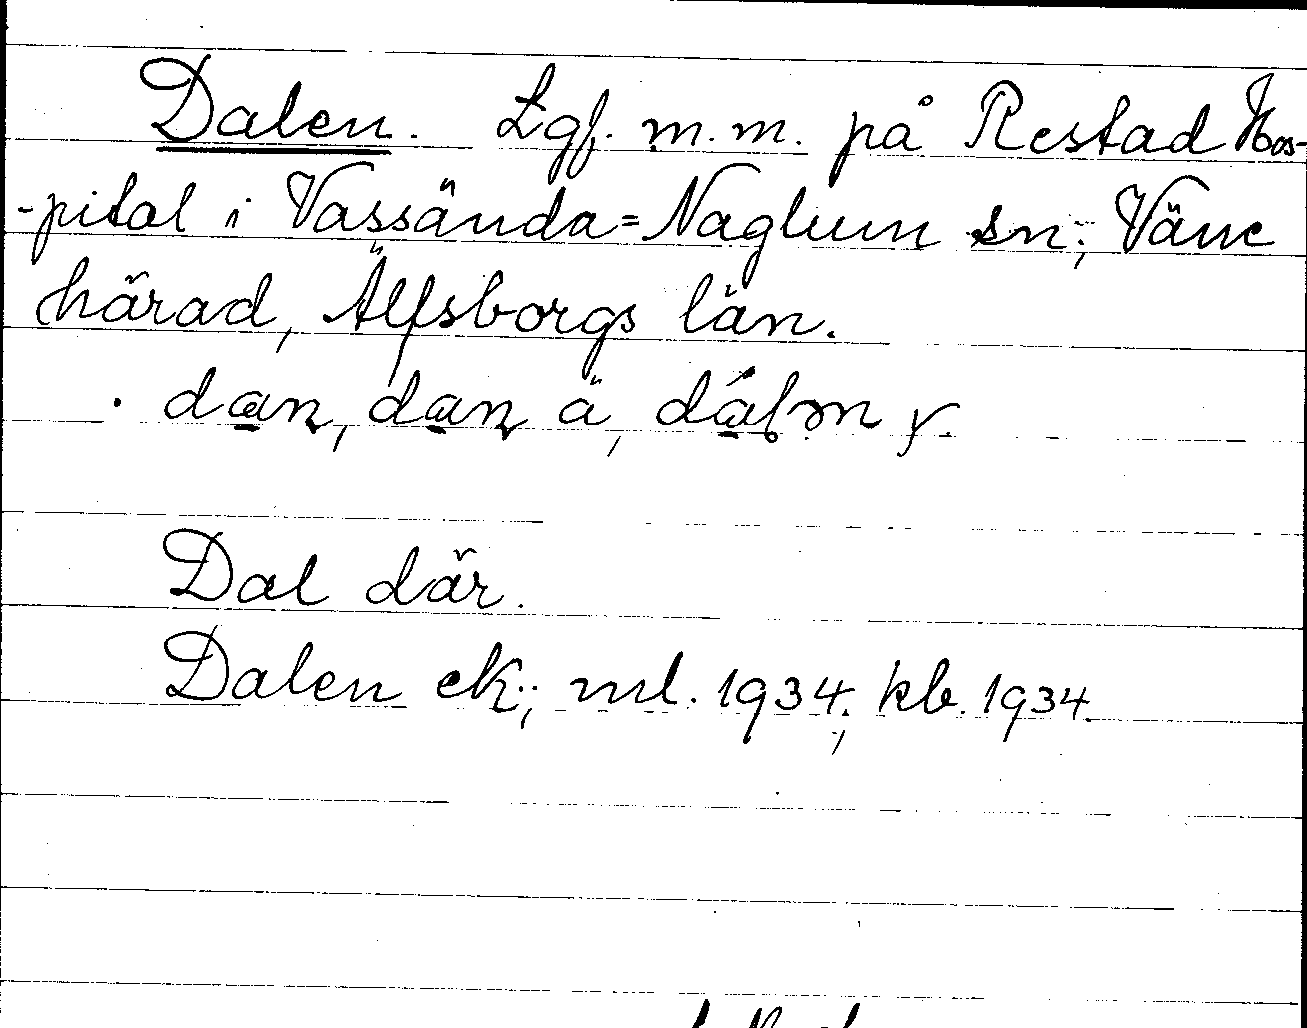 Dalen. Lgf. m.m. på Restad Hos-
-pital i Vassända=Naglum sn; Väne
härad, Älfsborgs län.
dan, dan ä, y.
Dal där.
Dalen ek; ml. 1934; kb. 1934.